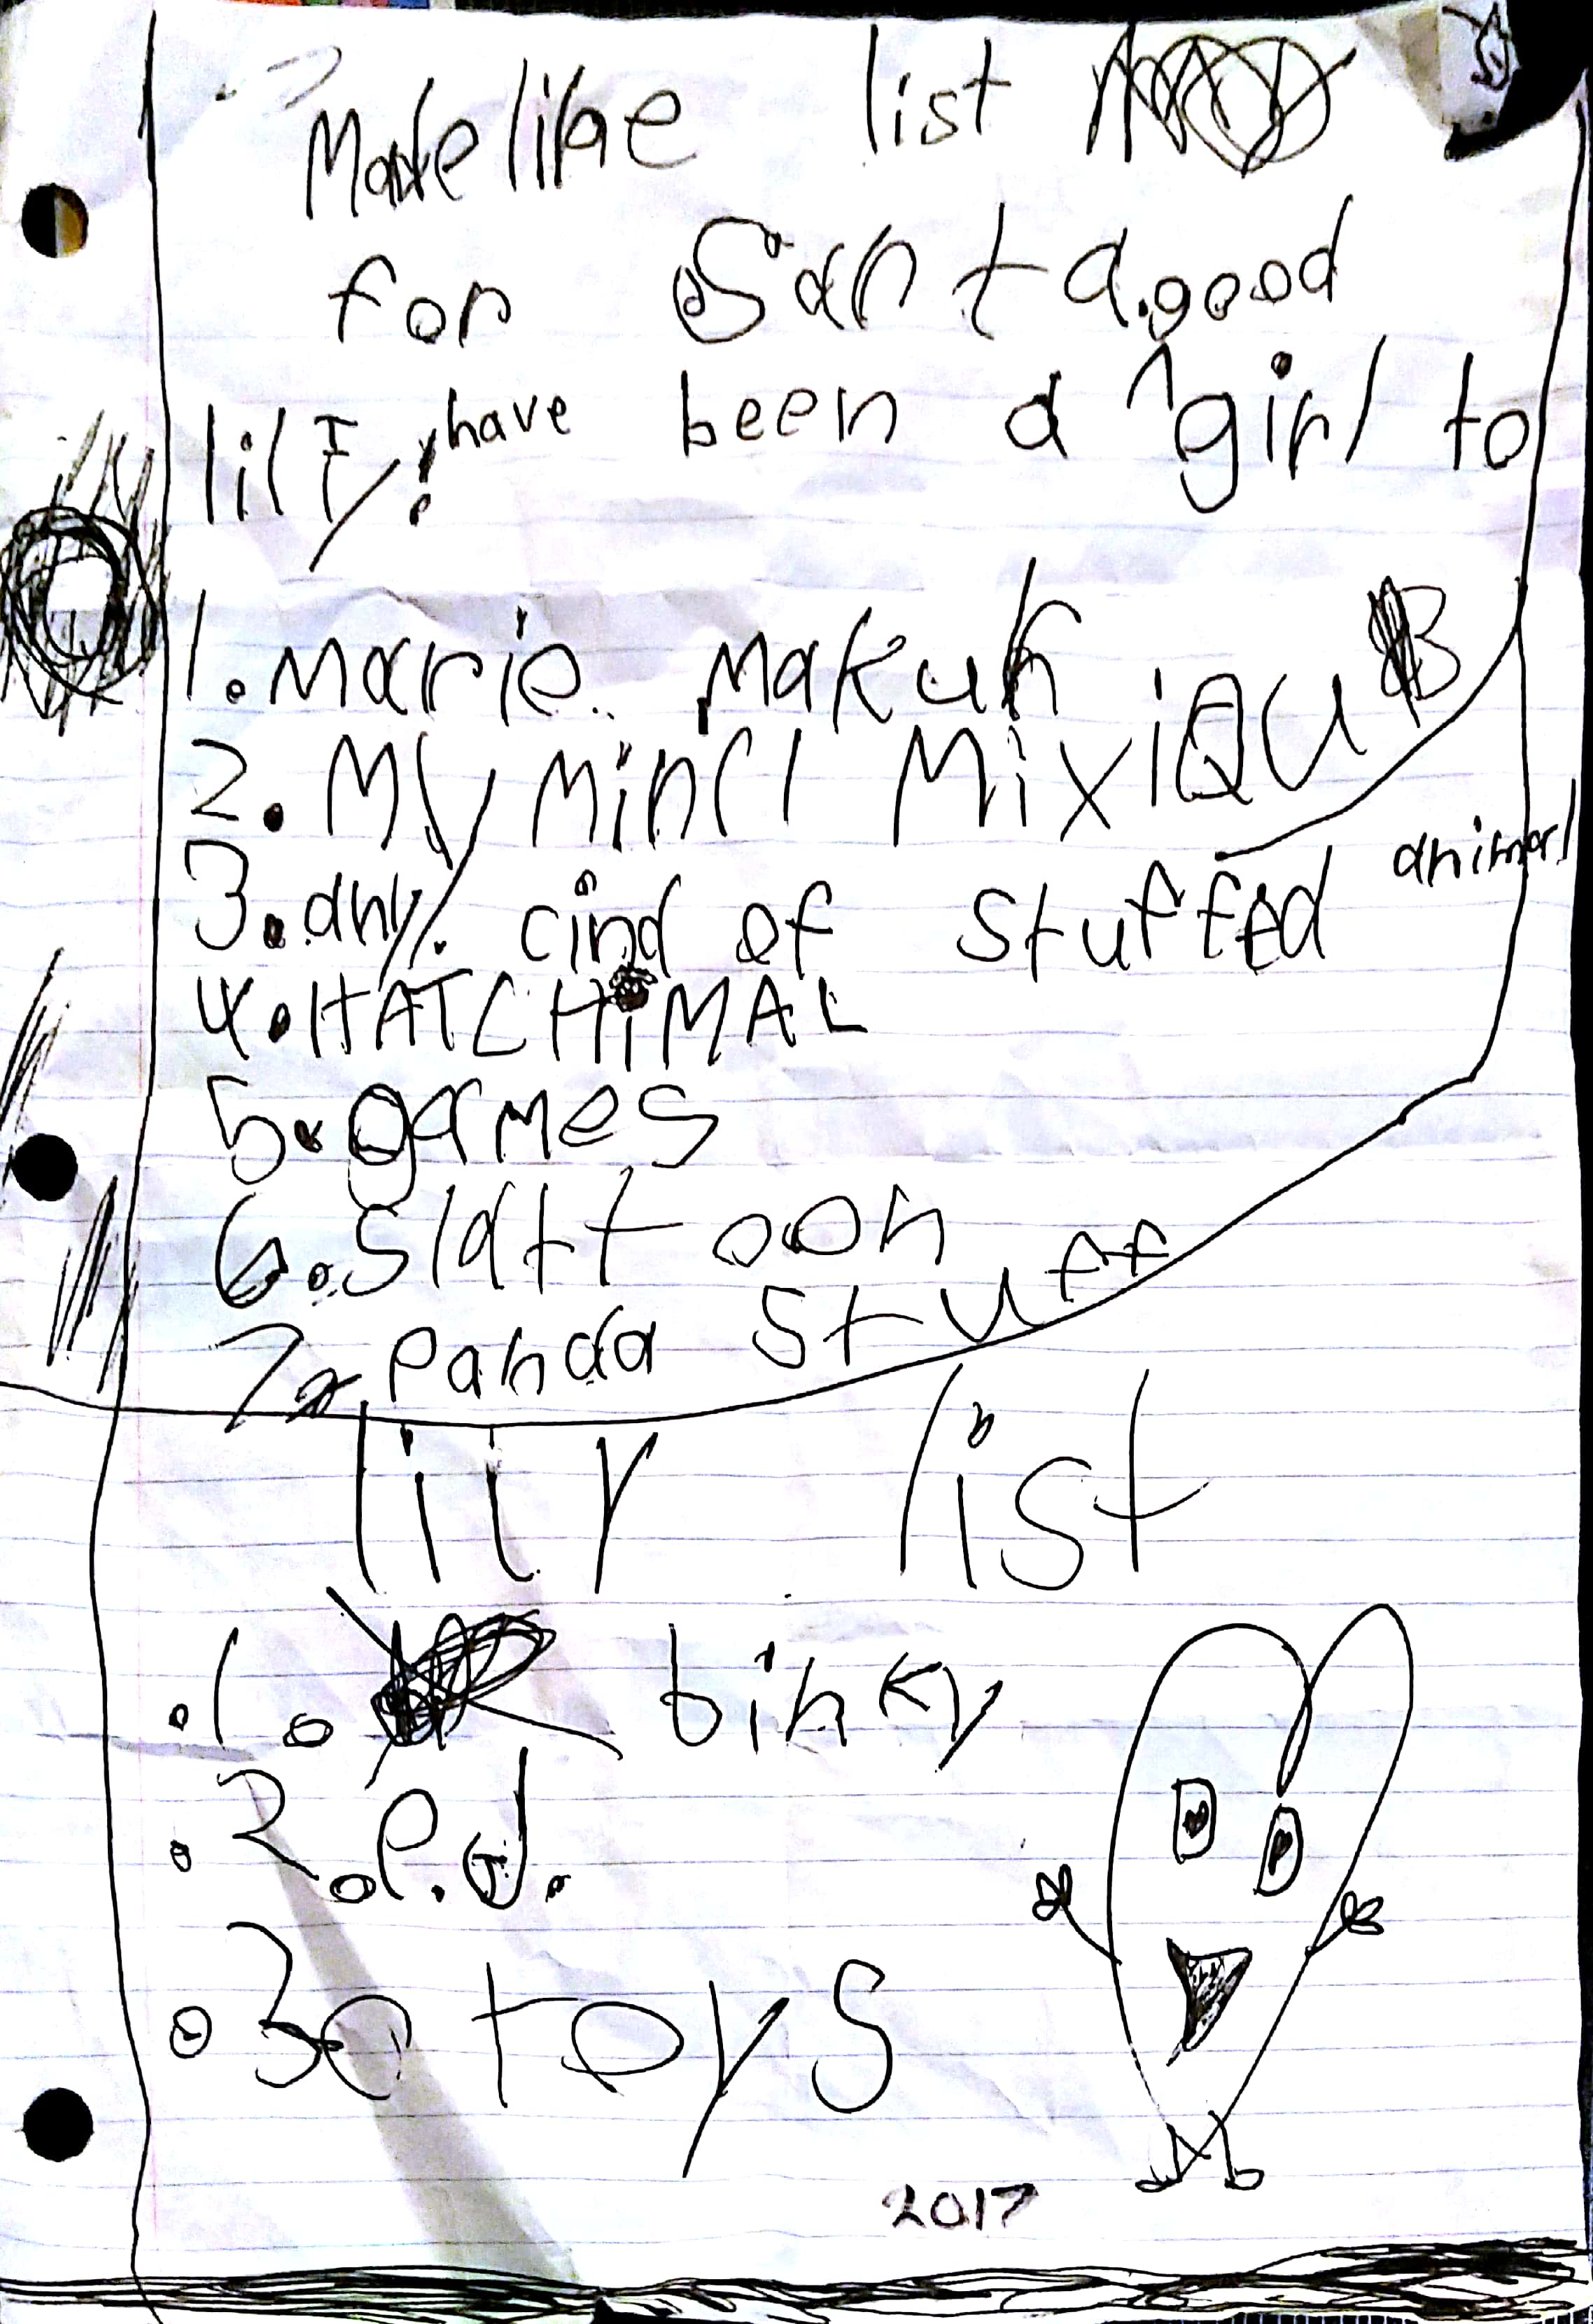 list
for Santa. good
lily! I have been a ^ girl to
1. Marie. Makuh
2. My Minci MixiQu B
3. any. cind of stuffed animal
4. HATCHiMAL
5. games
6. Slattoon
7. Panda stuff
lily list
.1. binky
.2. P.J.
.3. toys
2017